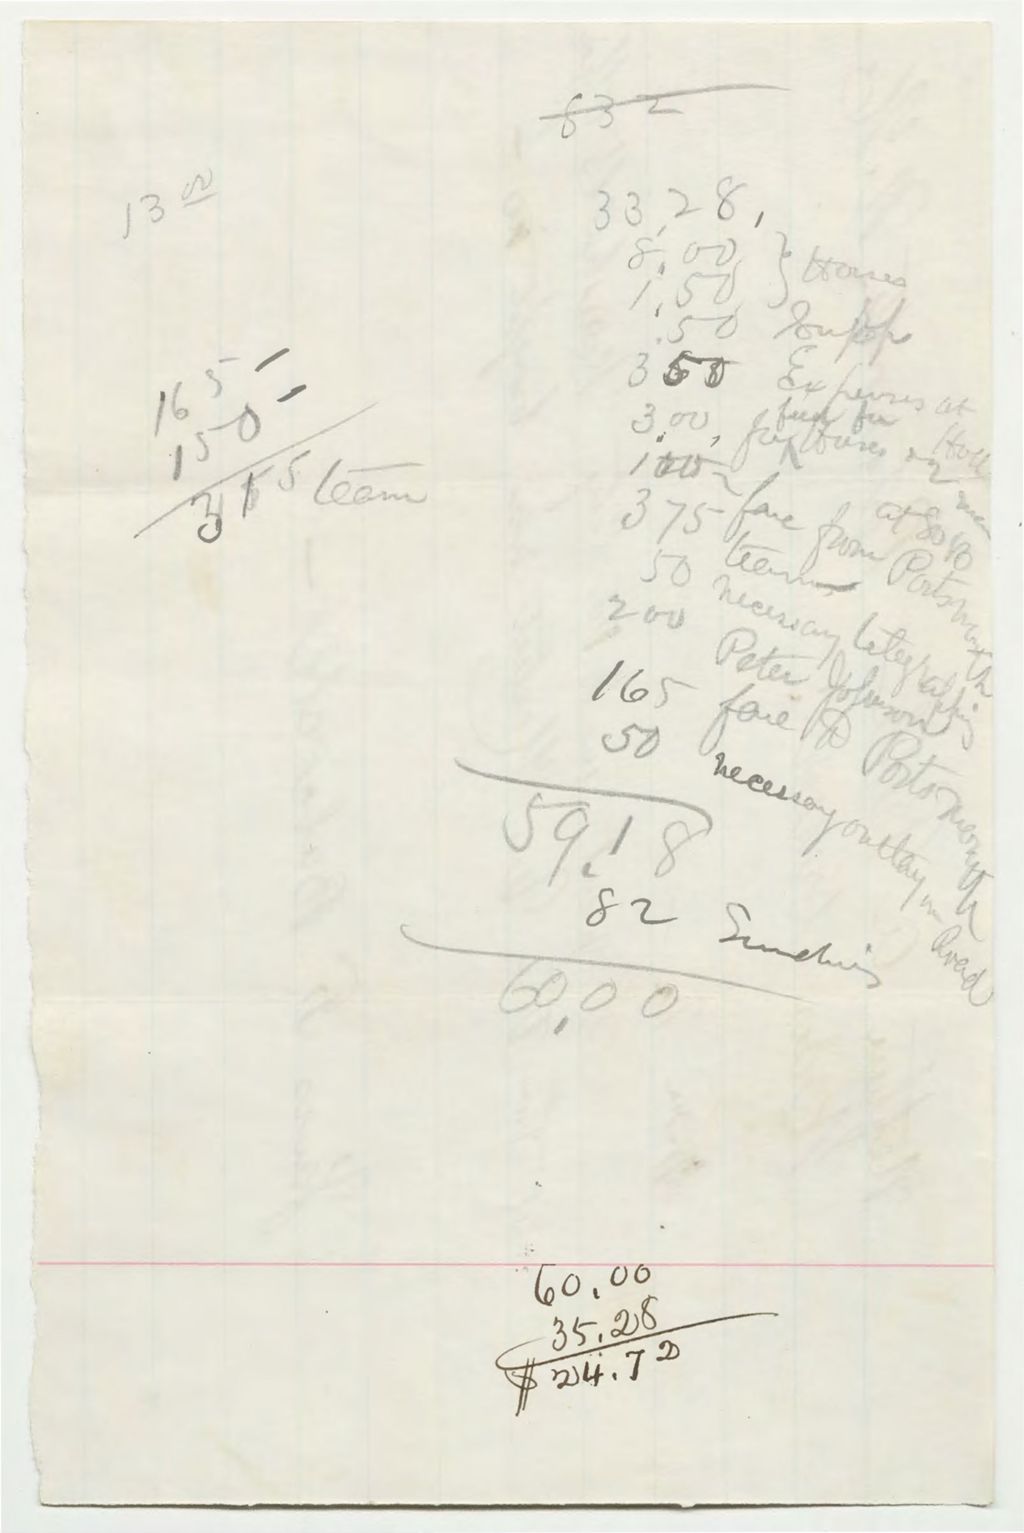 832
13 00
33,28,
8,00 } Horses
1,50
.50 Supp
3 50 Expenses at Hotel
3.00, feed for Horses
1 00 at
3 75 fare from Portsmouth
50 teams
200 necessary telegraphing
Peter Johnson
165 fare to Portsmouth
50 necessary outlay on Road
59.18
82 Sundries
60,00
165
150
315 team
60.00
35.28
$24.72